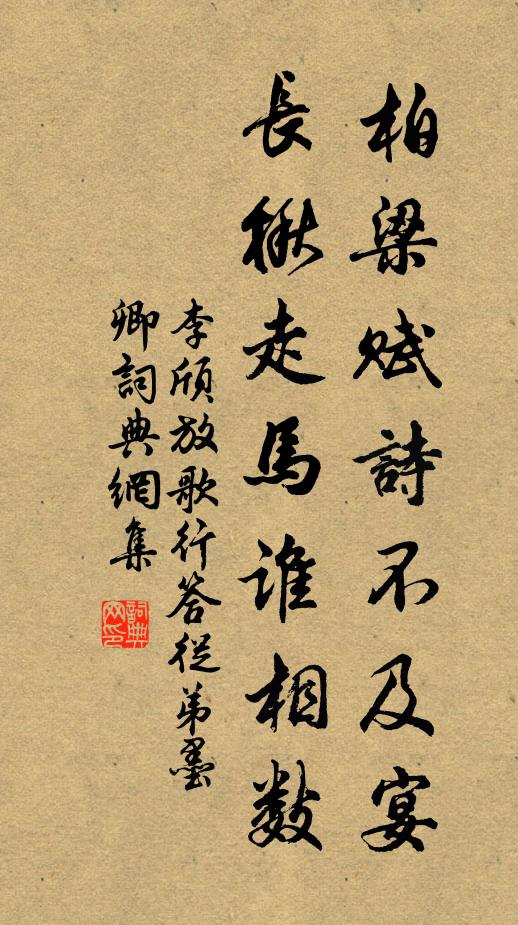 柏梁赋詩不及宴
長楸走馬谁相数
李颀放歌行答從弟墨
卿詞典網集
詞典
网印